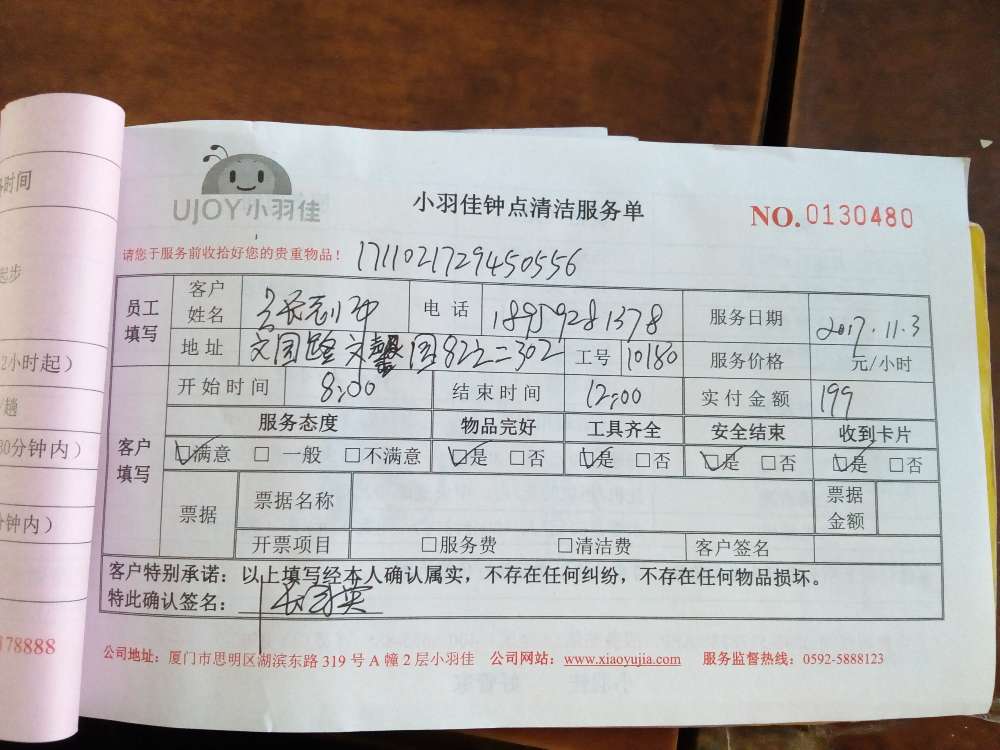 UJOY小羽佳
小羽佳钟点清洁服务单
NO.0130480
请您于服务前收拾好您的贵重物品！
1711021729450556
员工填写
客户姓名
电话 18959281378
服务日期 2017.11.3
地址 文园路文馨园822二302
工号 10180
服务价格 元/小时
开始时间 8:00
结束时间 12:00
实付金额 199
客户填写
服务态度 物品完好 工具齐全 安全结束 收到卡片
□满意 □一般 □不满意 □是 □否 □是 □否 □是 □否 □是 □否
票据
票据名称
票据金额
开票项目 □服务费 □清洁费 客户签名
客户特别承诺：以上填写经本人确认属实，不存在任何纠纷，不存在任何物品损坏。
特此确认签名：
公司地址：厦门市思明区湖滨东路319号A幢2层小羽佳 公司网站：www.xiaoyujia.com 服务监督热线：0592-5888123
时间
起步
2小时起）
趟
30分钟内）
分钟内）
178888